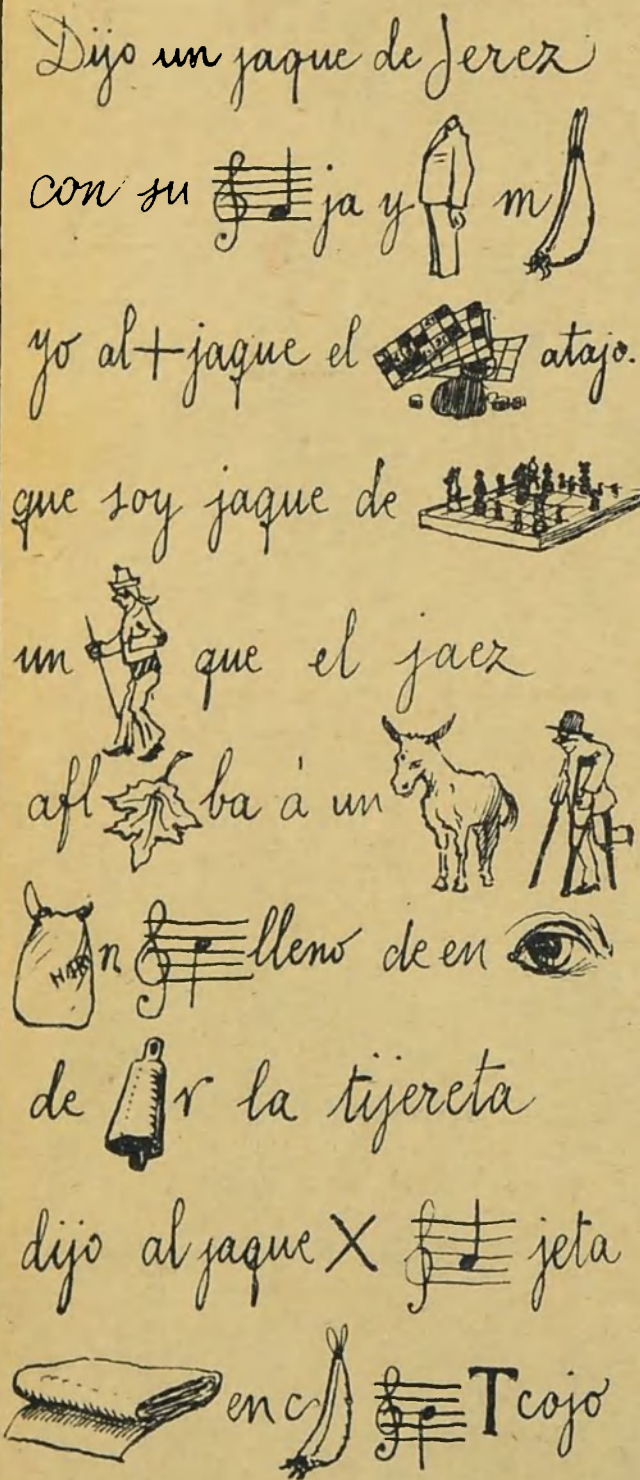 Dijo un jaque de Jerez
con su ja y m
yo al + jaque el atajo.
que soy jaque de
un que el jaez
afl ba á un
HAR n lleno de en
de r la tijereta
dijo al jaque X jeta
en c T cojo